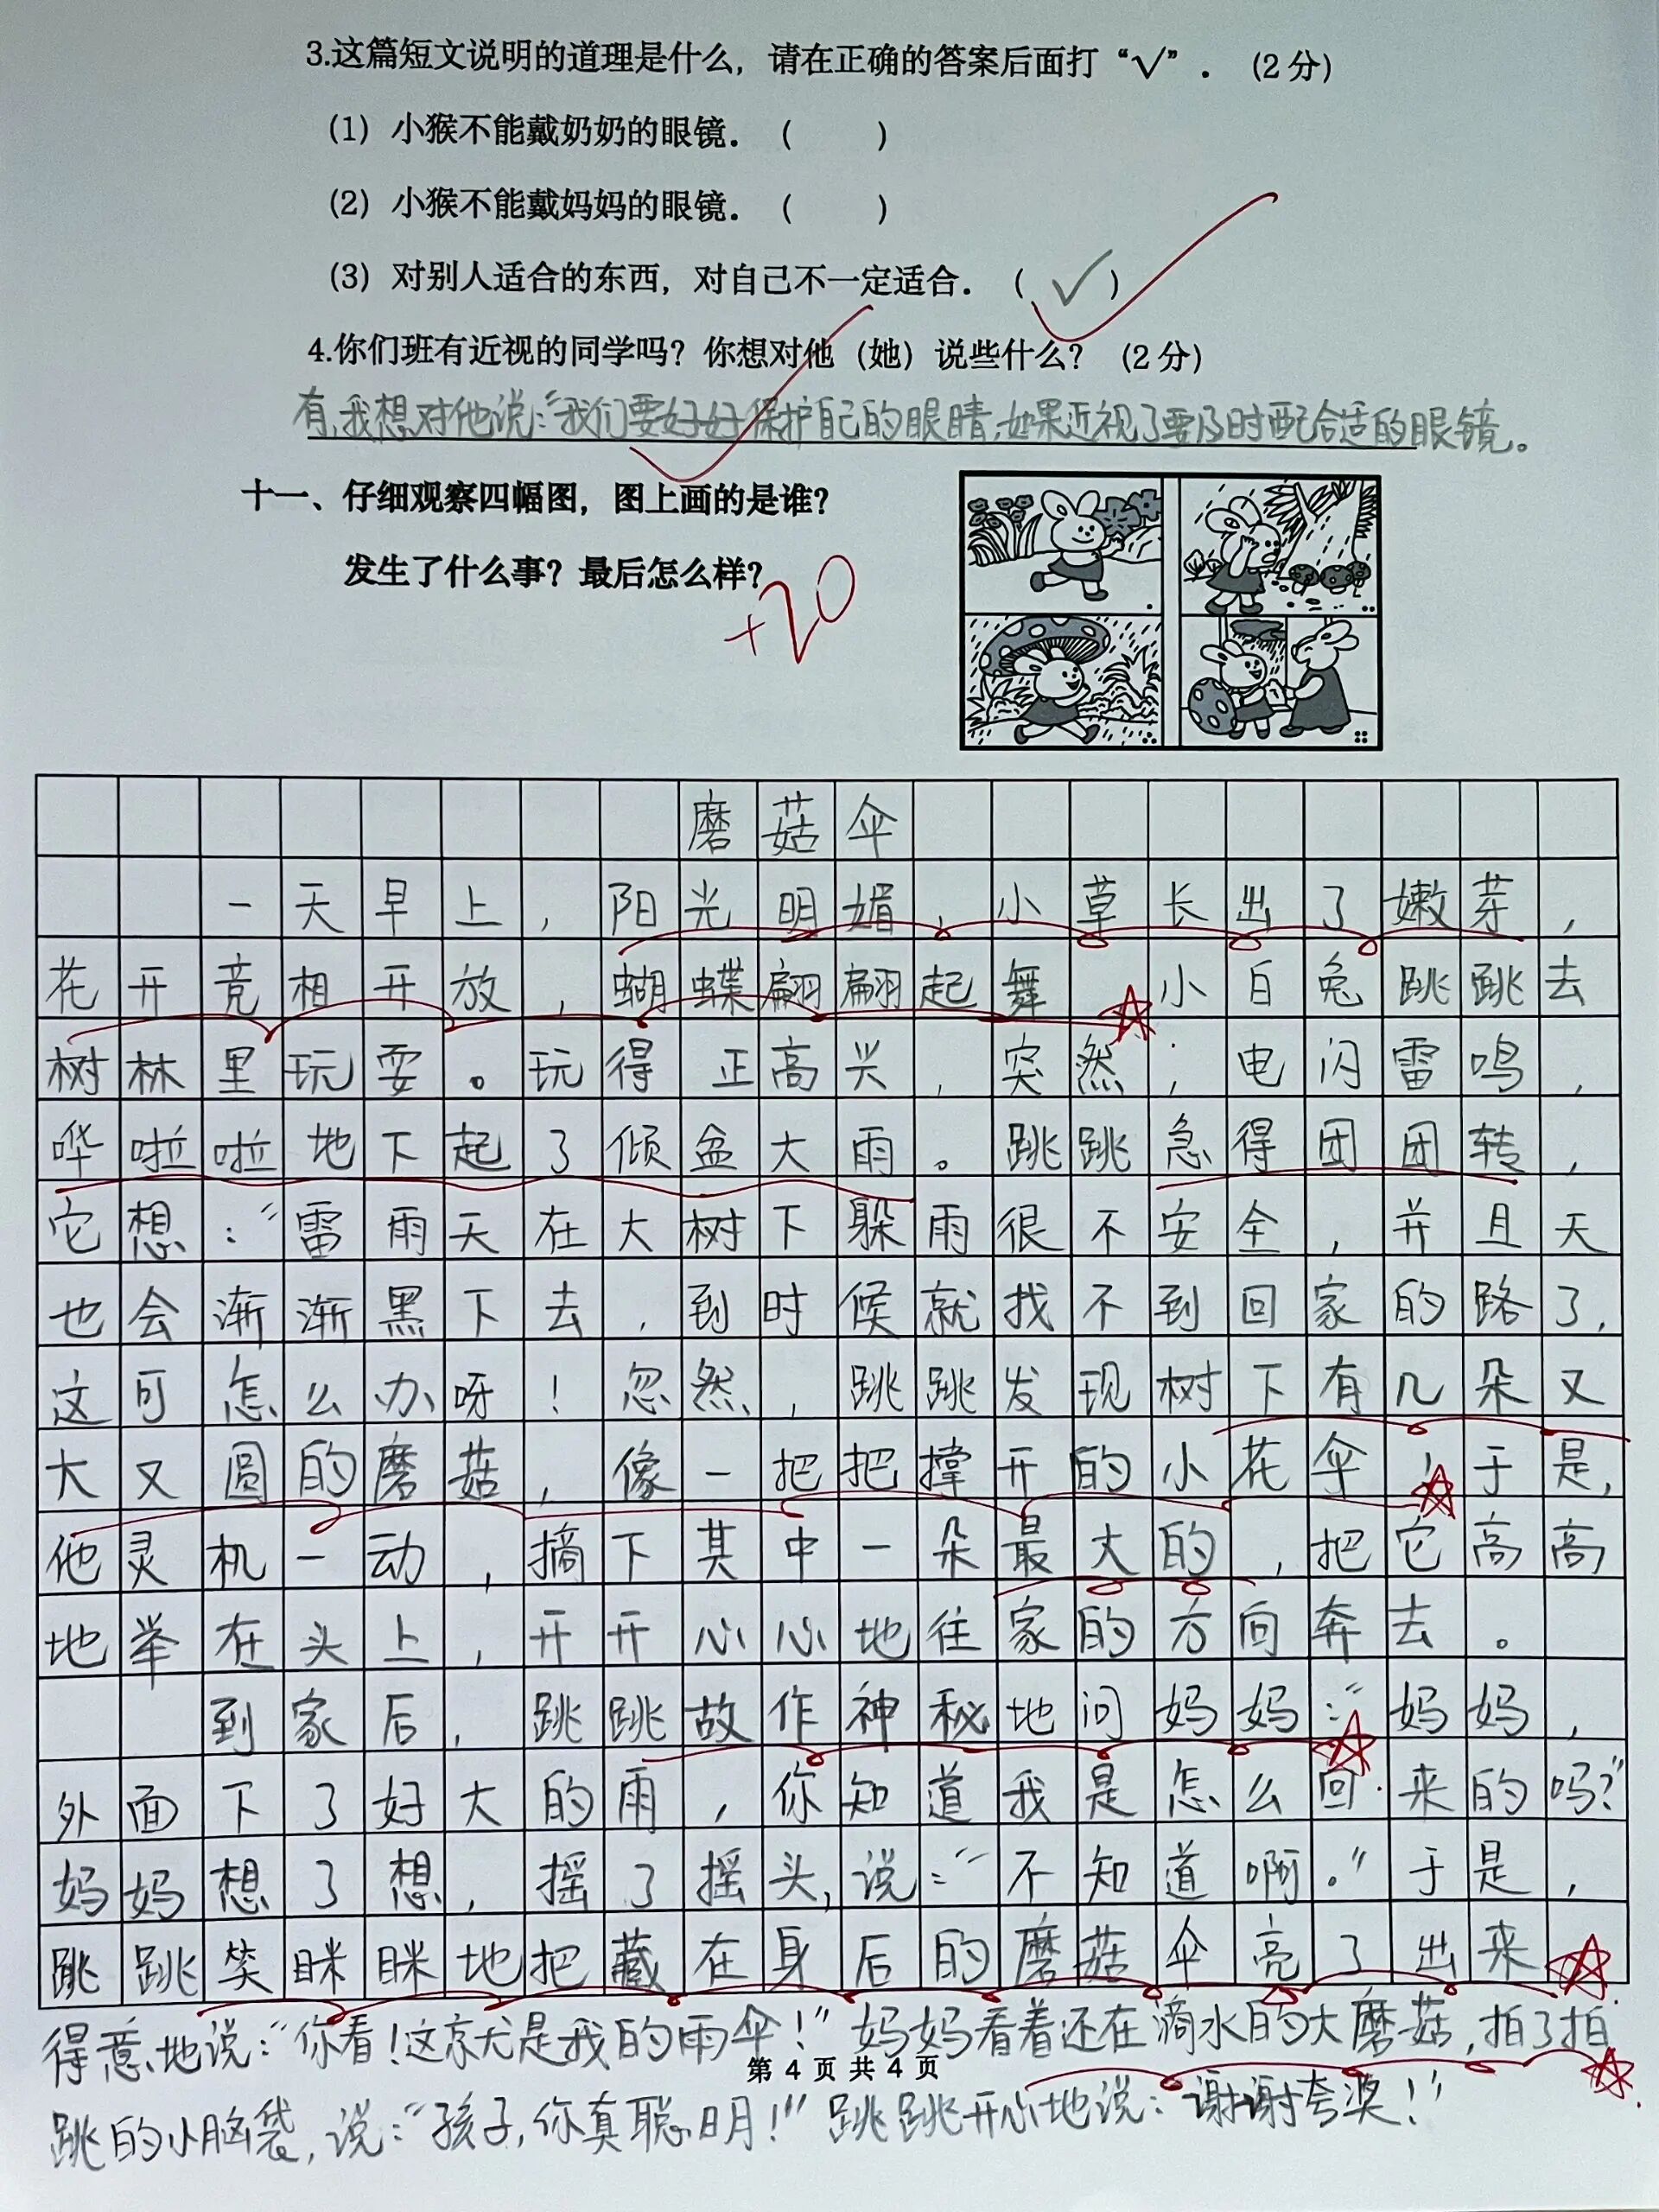 3.这篇短文说明的道理是什么，请在正确的答案后面打“√”．（2分）
（1）小猴不能戴奶奶的眼镜．（　　）
（2）小猴不能戴妈妈的眼镜．（　　）
（3）对别人适合的东西，对自己不一定适合．（√）
4.你们班有近视的同学吗？你想对他（她）说些什么？（2分）
有,我想对他说:“我们要好好保护自己的眼睛,如果近视了要及时配合适的眼镜。
十一、仔细观察四幅图，图上画的是谁？
发生了什么事？最后怎么样？
+20
磨菇伞
一天早上,阳光明媚,小草长出了嫩芽,
花开竞相开放,蝴蝶翩翩起舞 小白兔跳跳去
树林里玩耍。玩得正高兴,突然,电闪雷鸣,
哗啦啦地下起了倾盆大雨。跳跳急得团团转,
它想:“雷雨天在大树下躲雨很不安全,并且天
也会渐渐黑下去,到时候就找不到回家的路了,
这可怎么办呀!忽然,跳跳发现树下有几朵又
大又圆的磨菇,像一把把撑开的小花伞,于是,
他灵机一动,摘下其中一朵最大的,把它高高
地举在头上,开开心心地往家的方向奔去。
到家后,跳跳故作神秘地问妈妈:“妈妈,
外面下了好大的雨,你知道我是怎么回来的吗?”
妈妈想了想,摇了摇头,说:“不知道啊。”于是,
跳跳笑眯眯地把藏在身后的磨菇伞亮了出来
得意地说:“你看!这就是我的雨伞!”妈妈看着还在滴水的大磨菇,拍了拍
第 4 页 共 4 页
跳的小脑袋,说:“孩子,你真聪明!”跳跳开心地说:“谢谢夸奖!”